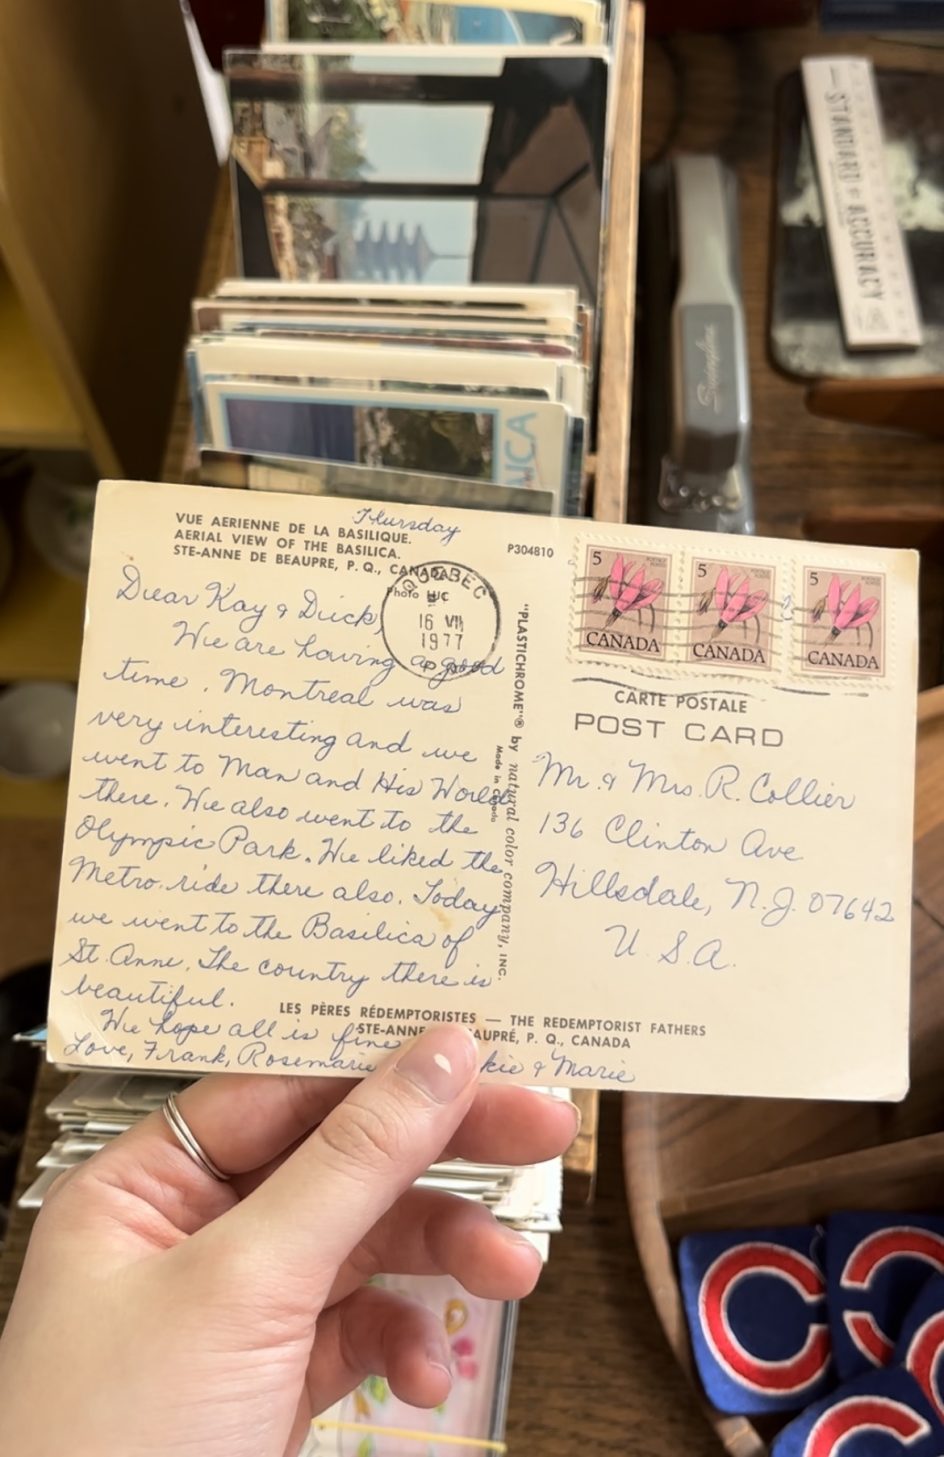 STANDARD of ACCURACY
Swingline
Thursday
VUE AERIENNE DE LA BASILIQUE.
AERIAL VIEW OF THE BASILICA.
STE-ANNE DE BEAUPRE, P. Q., CANADA
QUEBEC
16 VII
1977
P304810
5
CANADA
5
CANADA
5
CANADA
CARTE POSTALE
POST CARD
Dear Kay & Dick,
We are having a good
time. Montreal was
very interesting and we
went to Man and His World
there. We also went to the
Olympic Park. We liked the
Metro ride there also. Today
we went to the Basilica of
St. Anne. The country there is
beautiful.
We hope all is fine
Love, Frank, Rosemarie & Marie
"PLASTICHROME"® by natural color company, INC.
Made in Canada
Mr. & Mrs. R. Collier
136 Clinton Ave
Hillsdale, N.J. 07642
U.S.A.
LES PÈRES RÉDEMPTORISTES — THE REDEMPTORIST FATHERS
STE-ANNE P. Q., CANADA